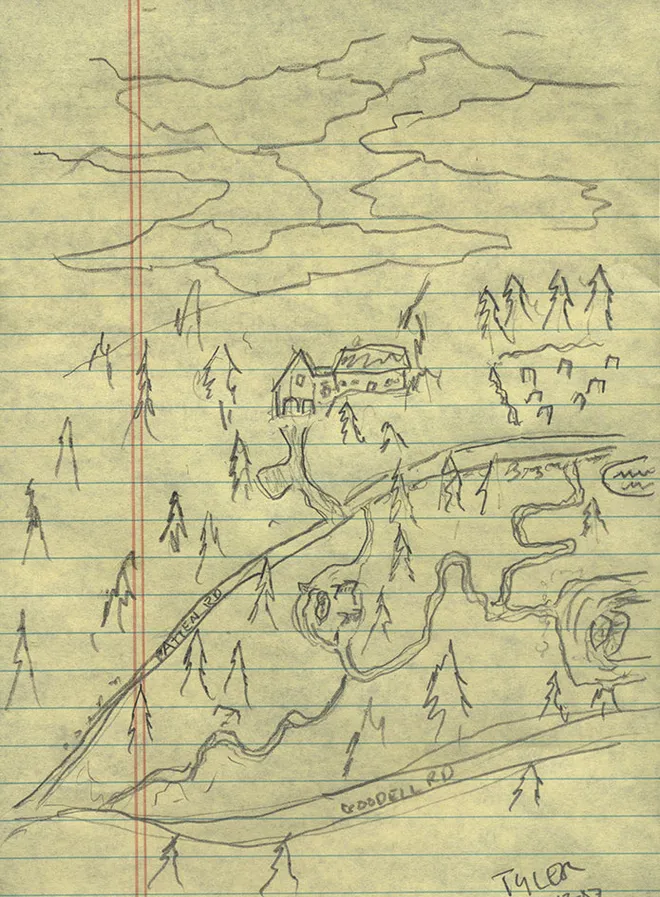 PATTEN RD
GOODELL RD
TYLER